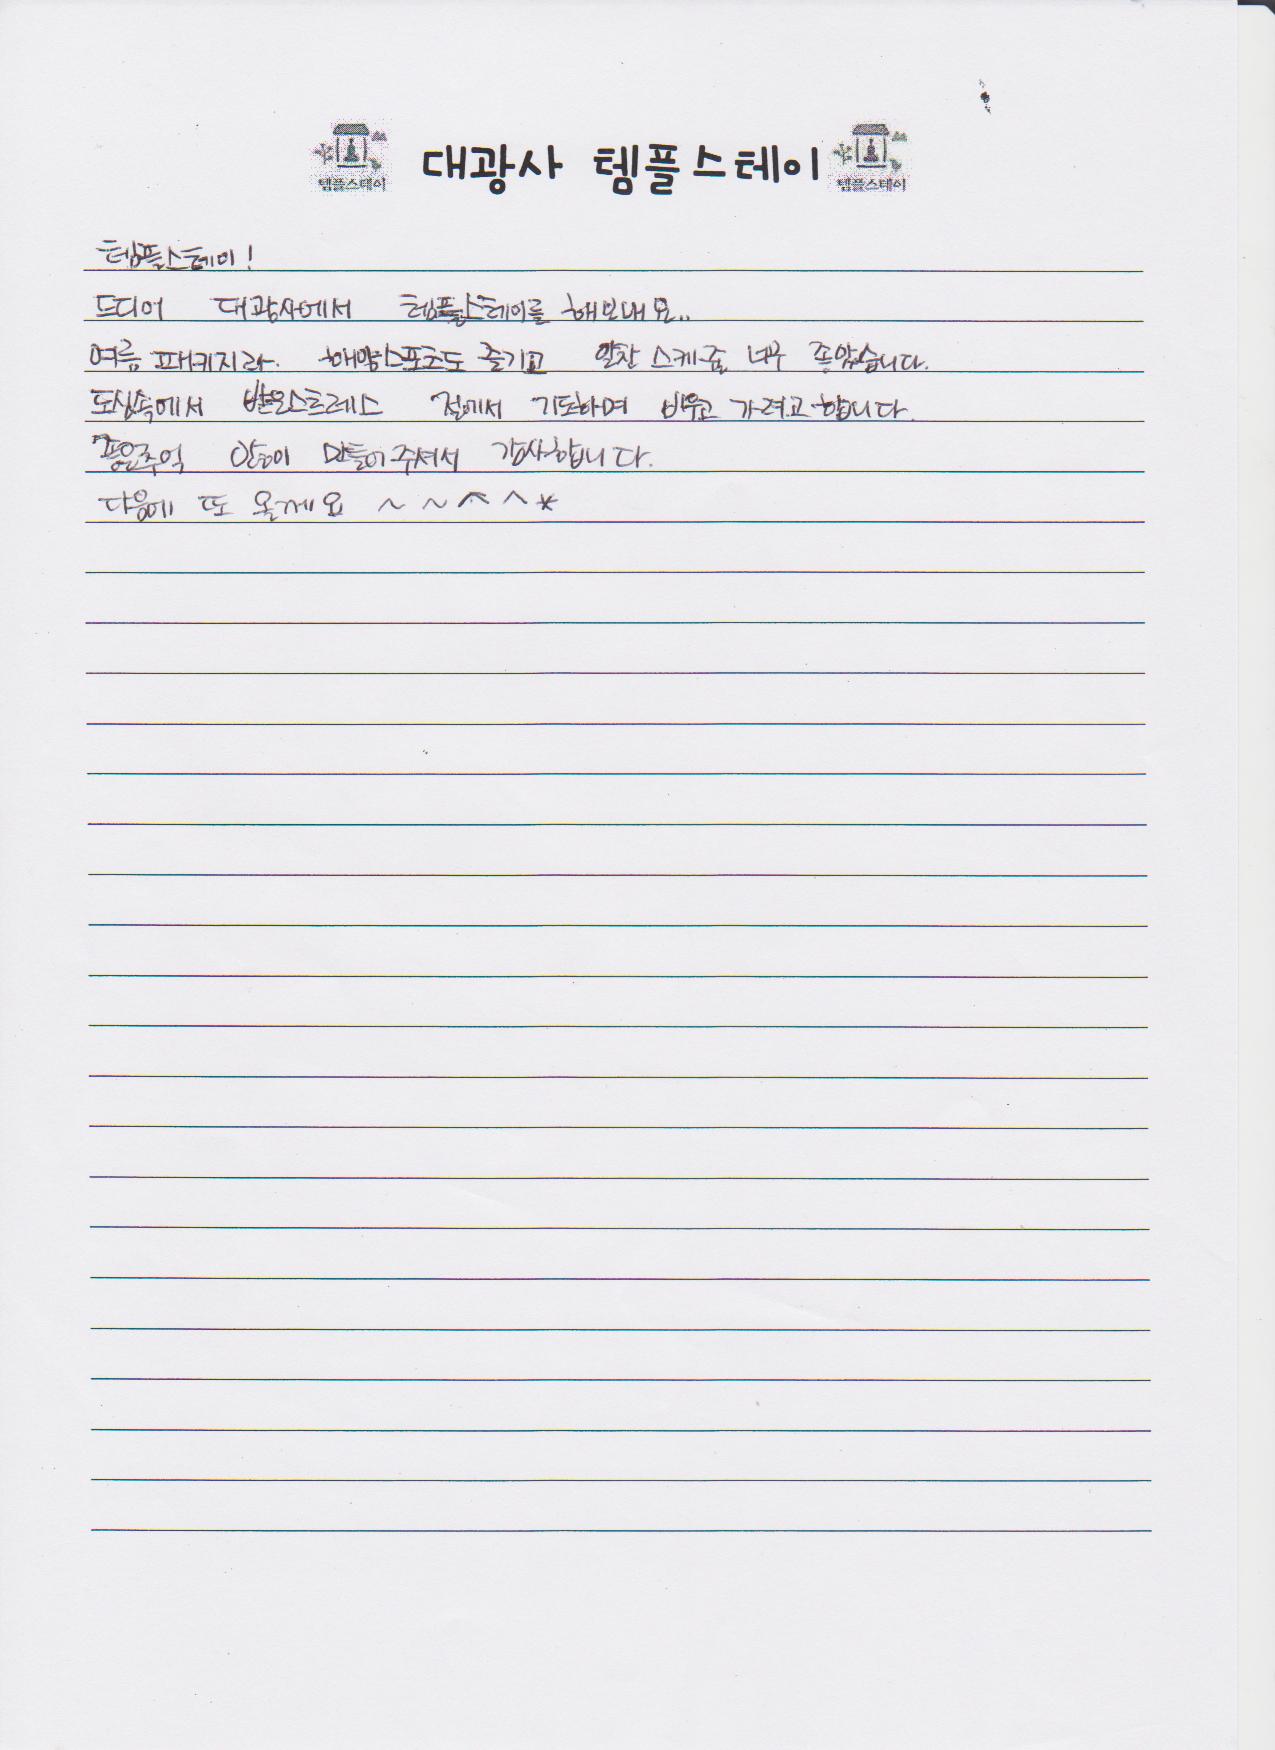 대광사 템플스테이
템플스테이
템플스테이
템플스테이!
드디어 대광사에서 템플스테이를 해보내요..
여름 패키지라. 해양스포츠도 즐기고 알찬 스케줄 너무 좋았습니다.
도심속에서 받은스트레스 절에서 기도하며 비우고 가려고 합니다.
좋은추억 많이 만들어주셔서 감사합니다.
다음에 또 올게요 ~ ~ ^ ^ *